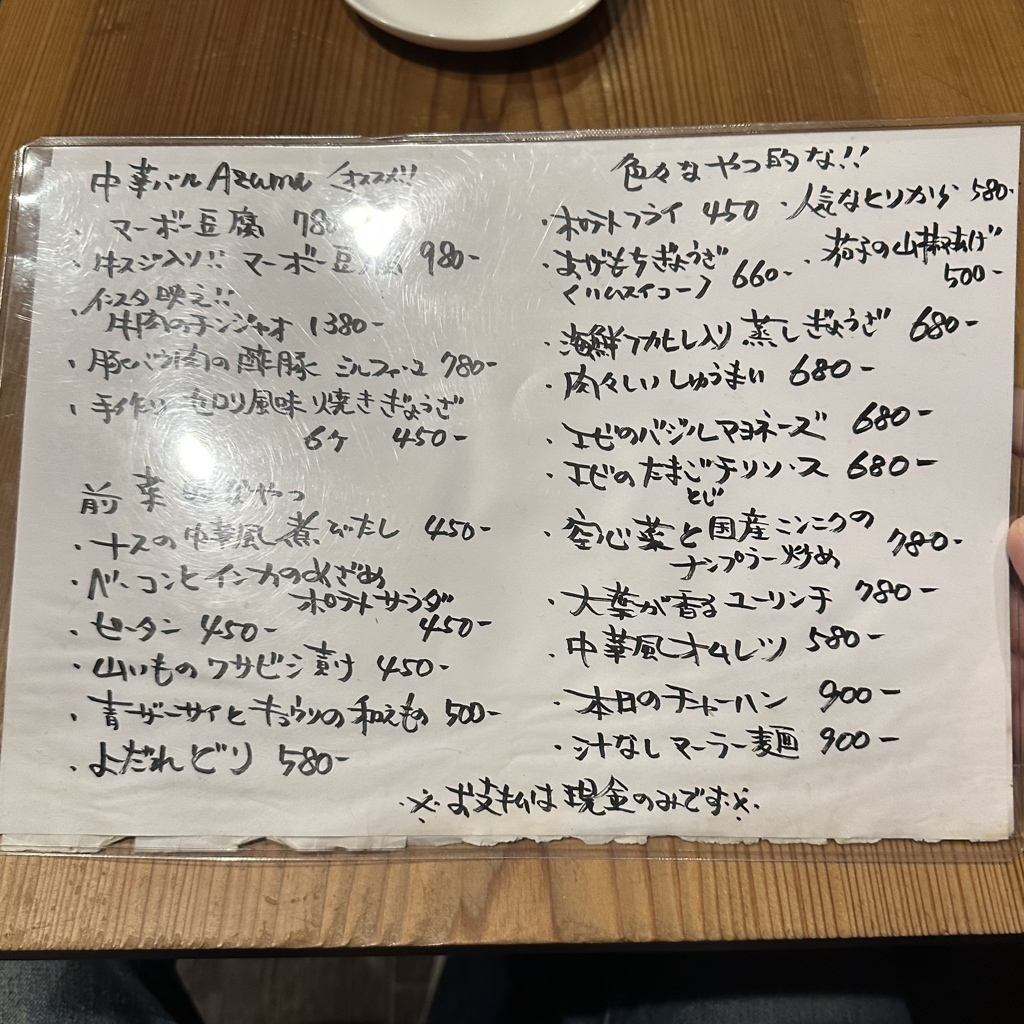 中華バル Azuma オススメ!!
・マーボー豆腐 780
・牛スジ入り!! マーボー豆腐 980-
・インスタ映え!!
牛肉のチンジャオ 1380-
・豚バラ肉の酢豚 ミルフィーユ 780-
・手作り 風味焼きぎょうざ
6ケ 450-
前菜 やつ
・ナスの中華風煮びたし 450-
・ベーコンとインカのめざめ
ポテトサラダ
450-
・ピータン 450-
・山いものワサビ漬け 450-
・青ザーサイとキュウリの和えもの 500-
・よだれどり 580-
色々なやつ的な!!
・ポテトフライ 450
・人気なとりから 580-
・あげもちぎょうざ
(ハムスイコー) 660-
・茄子の山椒あげ
500-
・海鮮フカヒレ入り蒸しぎょうざ 680-
・肉々しいしゅうまい 680-
・エビのバジルマヨネーズ 680-
・エビのたまごチリソース 680-
とじ
・空心菜と国産ニンニクの
ナンプラー炒め 780-
・大葉が香るユーリンチ 780-
・中華風オムレツ 580-
・本日のチャーハン 900-
・汁なしマーラー麺 900-
※お支払は現金のみです※